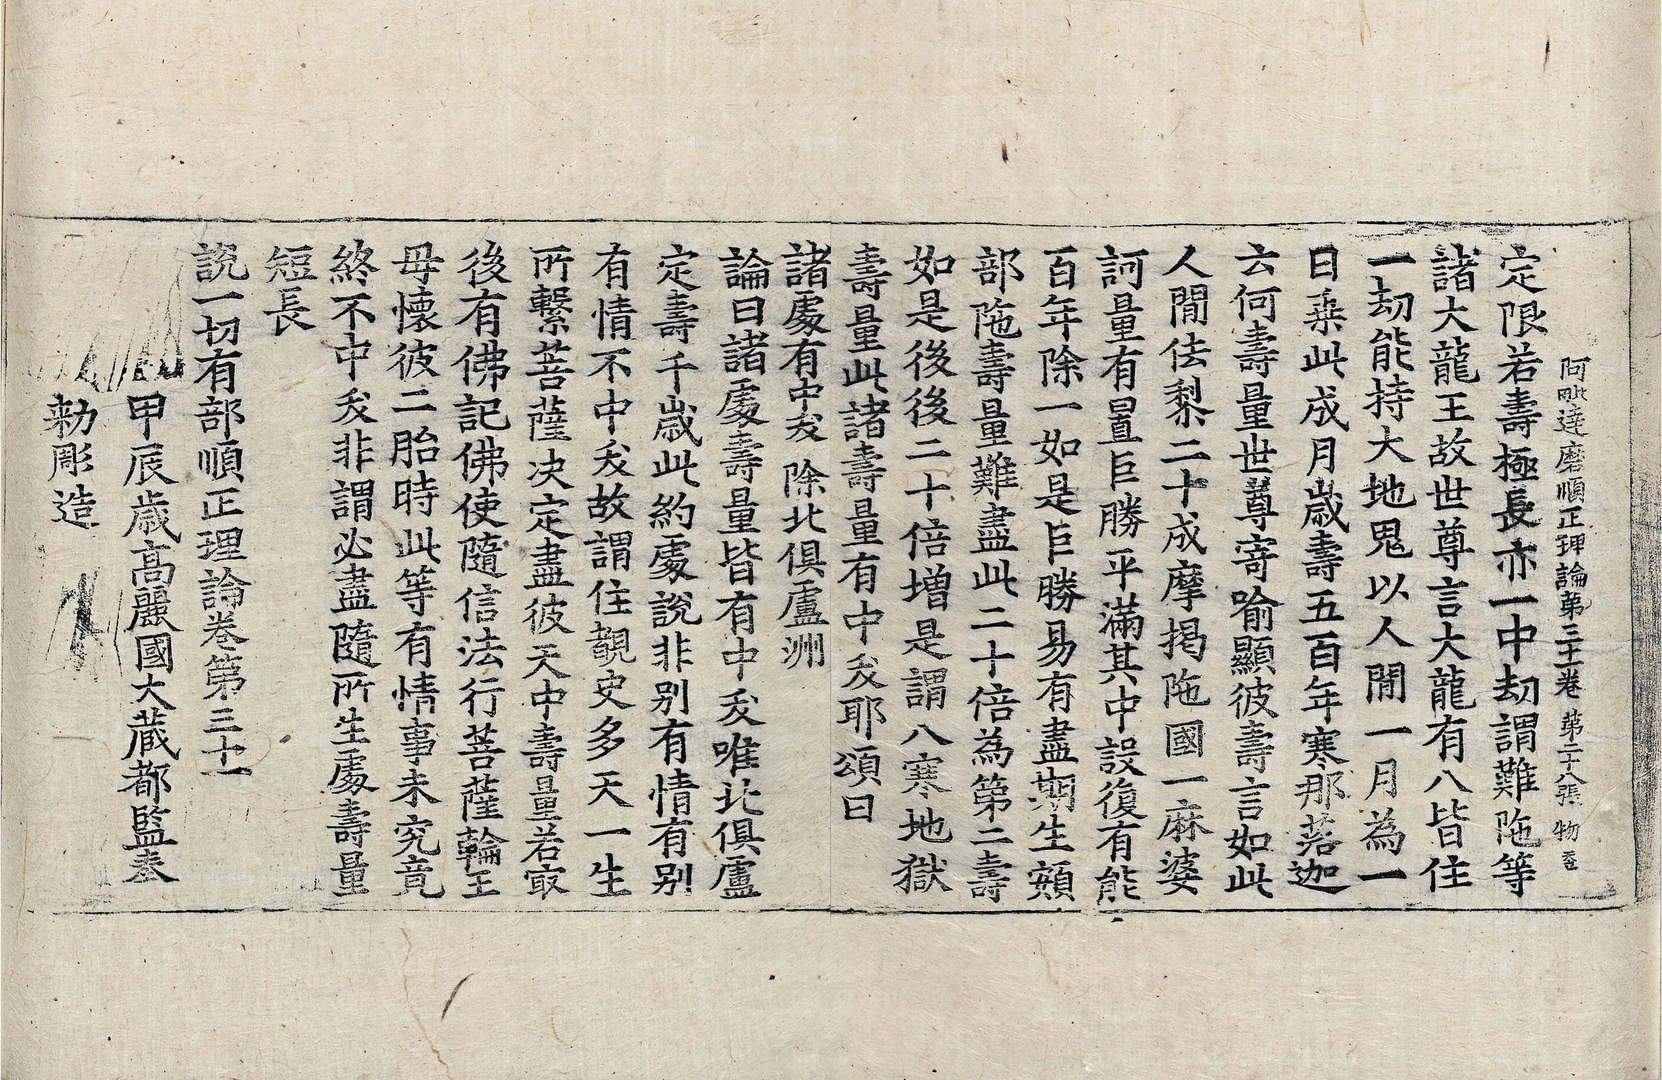 阿毗達磨順正理論第三十一卷 第二十八張 物
定限若壽極長亦一中劫謂難陁等
諸大龍王故世尊言大龍有八皆住
一劫能持大地鬼以人閒一月為一
日乗此成月歲壽五百年寒那落迦
云何壽量世尊寄喻顯彼壽言如此
人閒佉梨二十成摩揭陁國一麻婆
訶量有置巨勝平滿其中設復有能
百年除一如是巨勝易有盡期生頞
部陁壽量難盡此二十倍為第二壽
如是後後二十倍增是謂八寒地獄
壽量此諸壽量有中夭耶頌曰
諸處有中夭 除北俱盧洲
論曰諸處壽量皆有中夭唯北俱盧
定壽千歲此約處說非别有情有别
有情不中夭故謂住覩史多天一生
所繫菩薩决定盡彼天中壽量若㝡
後有佛記佛使隨信法行菩薩輪王
母懷彼二胎時此等有情事未究竟
終不中夭非謂必盡隨所生處壽量
短長
說一切有部順正理論卷第三十一
甲辰歲高麗國大藏都監奉
勑彫造